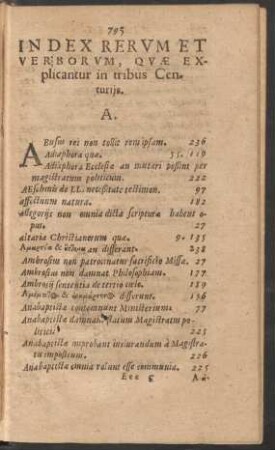 795
INDEX RERVM ET
VERBORVM, QVÆ EX-
plicantur in tribus Cen-
turijs.
A.
ABusus rei non tollit rem ipsam. 236
Adiaphora quæ. 55. 119
Adiaphora Ecclesiæ an mutari possint per
magistratum politicum. 222
AEschinis de LL. necessitate testimon. 97
affectuum natura. 182
allegorijs non omnia dicta scripturæ habent o-
pus. 27
altaria Christianorum quæ. 9. 135
an differant. 238
Ambrosius non patrocinatur sacrificio Missæ. 27
Ambrosius non damnat Philosophiam. 177
Ambrosij sententia de tertio cœlo. 189
& differunt. 136
Anabaptistæ contemnunt Ministerium. 77
Anabaptistæ damnant statum Magistratus po-
litici. 223
Anabaptistæ improbant iusiurandum à Magistra-
tu impositum. 226
Anabaptistæ omnia volunt esse communia. 225
Eee